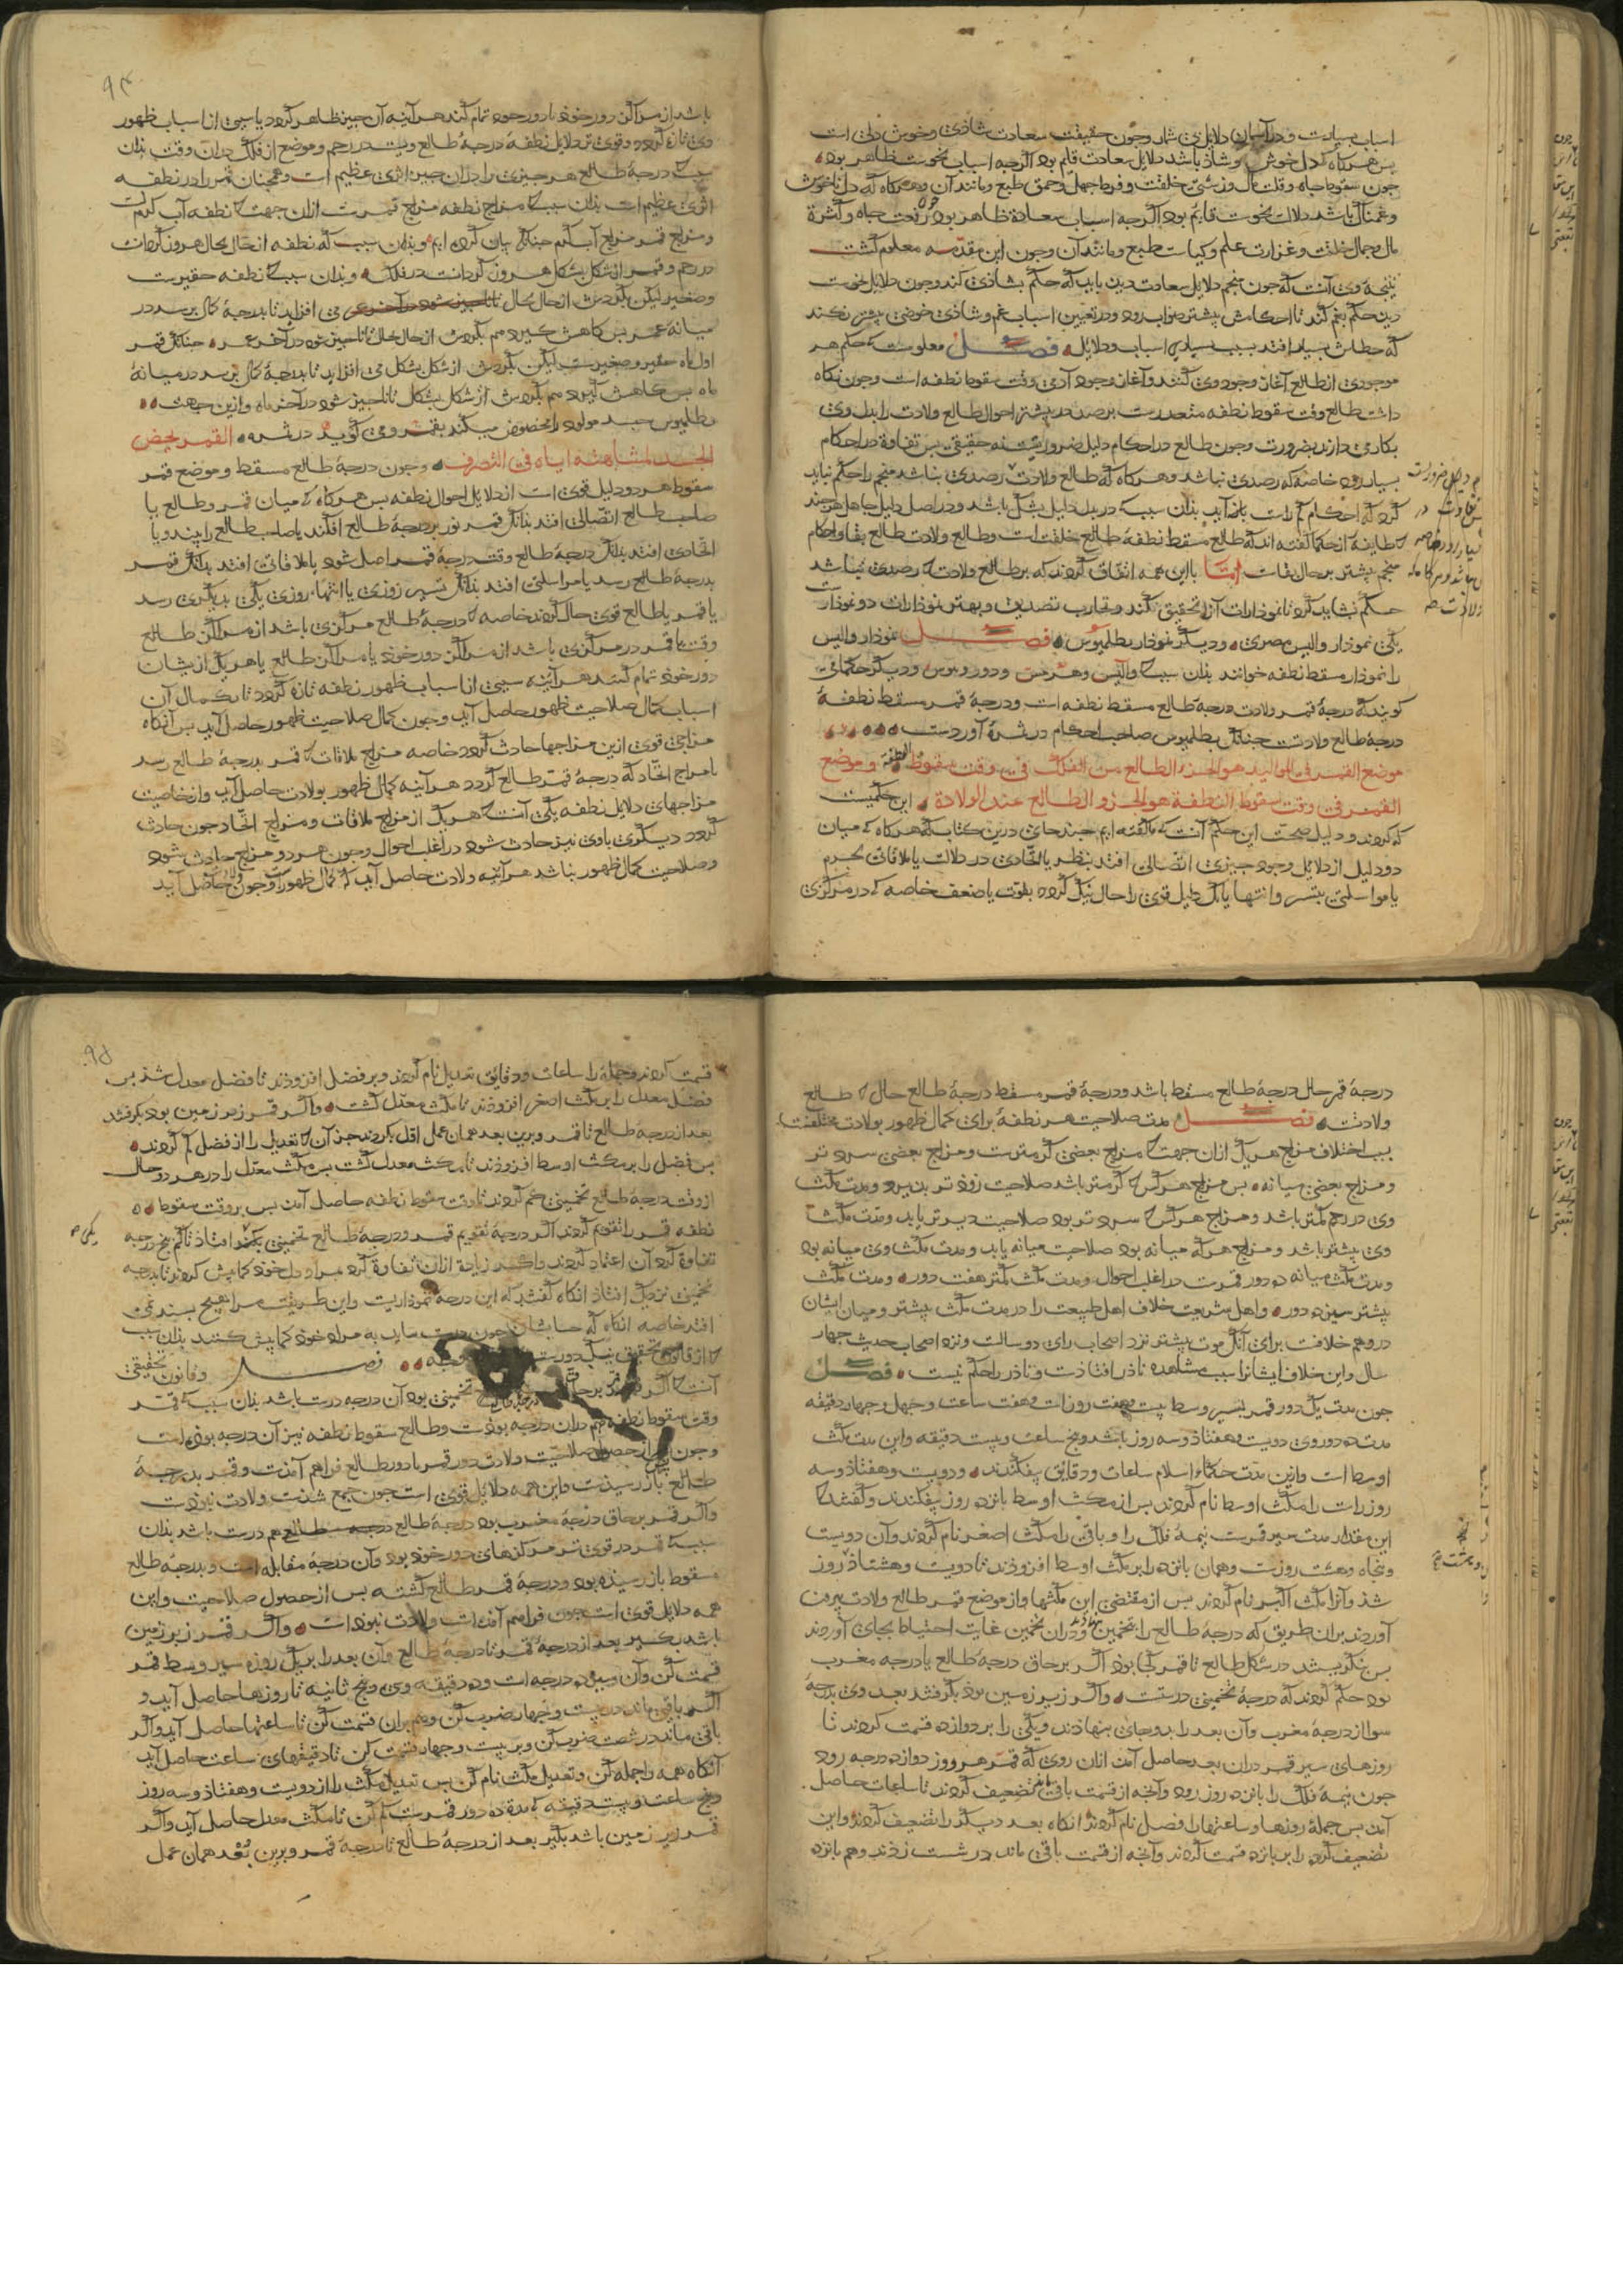 اسباب بسیارست و در آسمان دلایل بی شمار وچون حقیقت سعادت شاذی وخوش دلی است
پس هرکاه که دل خوش و شاذ باشد دلایل سعادت قایم بود اکرجه اسباب نحوست ظاهر بود
جون سقوط جاه وقلت مال وزشتی خلقت و فرط جهل وحمق طبع ومانند آن وهرکاه که دل ناخوش
وغمناک باشد دلالت نحوست قایم بود اکرجه اسباب سعادة ظاهر بود جون رفعت جاه وکثرة
مال وجمال خلقت وغزارت علم وکیاست طبع ومانند آن وجون این مقدمه معلوم کشت
نتیجه وی آنست که جون منجم دلایل سعادت دید باید که حکم بشاذی کند وجون دلایل نحوست
دید حکم بغم کند تا احکامش بیشتر صواب رود ودر تعیین اسباب غم وشاذی خوضی بیشتر نکند
که خطاش بسیار افتد بسبب بسیاری اسباب ودلایل فصل معلومست که حکم هر
موجودی از طالع آغاز وجود وی کنند وآغاز وجود آدمی وقت سقوط نطفه است وجون نکاه
داشت طالع وقت سقوط نطفه متعذرست برصد در بیشتر احوال طالع ولادت را بدل وی
بکار می دارند بضرورت وجون طالع در احکام دلیل ضروریست نه حقیقی بس تفاوة در احکام
بسیار رود خاصه که رصدی نباشد وهرکاه که طالع ولادت رصدی نباشد منجم را حکم نباید
کرد که احکام کم راست باز آید بذان سبب که در بدل دلیل بشک باشد ودر اصل دلیل جاهل هرجند
که طایفه از حکما کفته اند که طالع مسقط نطفه طالع خلقت است وطالع ولادت طالع بقا واحکام
منجم بیشتر بر حال بقاست اما با این همه اتفاق کردند که بر طالع ولادت که رصدی نباشد
حکم نشاید کرد تا نموذارات آنرا تحقیق نکند وتجارب تصدیق وبهتر نموذارات دو نموذارست
یکی نموذار والیس مصری ودیکر نموذار بطلمیوس فصل نموذار والیس
را نموذار مسقط نطفه خوانند بذان سبب که والیس وهرمس ودورونیوس ودیکر حکمای
کویند که درجهٔ قمر ولادت درجهٔ طالع مسقط نطفه است ودرجهٔ قمر مسقط نطفهٔ
درجهٔ طالع ولادتست جنانک بطلمیوس صاحب احکام در ثمرهٔ آوردست
موضع القمر فی الموالید هو الجزء الطالع من الفلک فی وقت سقوط النطفة وموضع
القمر فی وقت سقوط النطفة هو الجزو الطالع عند الولادة این حکمیست
که کردند و دلیل صحت این حکم آنست که ما کفته ایم جند جای درین کتاب که هرکاه که میان
دو دلیل از دلایل وجود جیزی اتصالی افتد بنظر یا اتحادی در دلالت یا ملاقاتی بجرم
یا مواسلتی بتسیر وانتها یا یک دلیل قوی را حال نیک کردد بقوت یا ضعف خاصه که در مرکزی
باشد از مراکز دور خود تا دور خود تمام کند هرآینه آن جیز ظاهر کردد یا سببی از اسباب ظهور
وی تازه کردد وقوی تر دلایل نطفه درجهٔ طالع ویست در رحم وموضع از فلک در آن وقت بذان
سبب که درجهٔ طالع هر جیزی را در آن حین اثری عظیم است وهمجنان قمر را در نطفه
اثری عظیم است بذان سبب که مزاج نطفه مزاج قمرست ازان جهت که نطفه آب کرمست
ومزاج قمر مزاج آب کرم جنانک بیان کرده ایم وبذان سبب که نطفه از حال بحال هر روز کردانست
در رحم وقمر از شکل بشکل هر روز کردانست در فلک وبذان سبب که نطفه حقیرست
وصغیر لیکن بکردش از حال بحال می افزاید تا بدرجهٔ کمال برسد در
میانهٔ عمر بس کاهش کیرد هم بکردش از حال بحال تا ناجیز شود در آخر عمر جنانک قمر
اول ماه حقیر وصغیرست لیکن بکردش از شکل بشکل می افزاید تا بدرجهٔ کمال برسد در میانهٔ
ماه بس کاهش کیرد هم بکردش از شکل بشکل تا ناجیز شود در آخر ماه وازین جهت
بطلمیوس جسد مولود را مخصوص میکند بقمر ومی کوید در ثمره القمر یخص
الجسد لمشابهته ایاه فی التصرف وجون درجهٔ طالع مسقط وموضع قمر
سقوط هر دو دلیل قوی است از دلایل احوال نطفه بس هرکاه که میان قمر وطالع یا
صاحب طالع اتصالی افتد بذانک قمر نور بر درجهٔ طالع افکند یا صاحب طالع را بیند ویا
اتحادی افتد بذانک درجهٔ طالع وقت درجهٔ قمر اصل شود یا ملاقاتی افتد بذانک قمر
بدرجهٔ طالع رسد یا مراسلتی افتد بذانک تسیر روزی یا انتهاء روزی یکی بدیکری رسد
یا قمر یا طالع قوی حال کردند خاصه که درجهٔ طالع مرکزی باشد از مراکز طالع
وقت یا قمر در مرکزی باشد از مراکز دور خود یا مراکز طالع یا هر یک از یشان
دور خود تمام کنند هرآینه سببی از اسباب ظهور نطفه تازه کردد تا بکمال آن
اسباب کمال صلاحیت ظهور حاصل آید وجون کمال صلاحیت ظهور حاصل آید بس آنکاه
مزاجی قوی ازین مزاجها حادث کردد خاصه مزاج ملاقات که قمر بدرجهٔ طالع رسد
یا مزاج اتحاد که درجهٔ قمر طالع کردد هرآینه کمال ظهور بولادت حاصل آید واز خاصیت
مزاجهای دلایل نطفه یکی آنست که هر یک از مزاج ملاقات ومزاج اتحاد جون حادث
کردد دیکری باوی نیز حادث شود در اغلب احوال وجون هر دو مزاج حادث شود
وصلاحیت کمال ظهور بباشد هرآینه ولادت حاصل آید که کمال ظهورست وجون حاصل آید
درجهٔ قمر حال درجهٔ طالع مسقط باشد ودرجهٔ قمر مسقط درجهٔ طالع حال که طالع
ولادتست فصل مدت صلاحیت هر نطفهٔ برای کمال ظهور بولادت مختلفست
بسبب اختلاف مزاج هر یک ازان جهت که مزاج بعضی کرمترست ومزاج بعضی سرد تر
ومزاج بعضی میانه بس مزاج هرکس که کرمتر باشد صلاحیت زوذ تر بذیرد ومدت مکث
وی در رحم کمتر باشد ومزاج هرکس که سرد تر بود صلاحیت دیرتر یابد ومدت مکث
وی بیشتر باشد ومزاج هرکه میانه بود صلاحیت میانه یابد ومدت مکث وی میانه بود
ومدت مکث میانه ده دور قمرست در اغلب احوال ومدت مکث کمتر هفت دور ومدت مکث
بیشتر سیزده دور واهل شریعت خلاف اهل طبیعت را در مدت مکث بیشتر ومیان ایشان
درو هم خلافست برای آنک موت بیشتر نزد اصحاب رای دو سالست ونزد اصحاب حدیث جهار
سال واین خلاف ایشانرا بسبب مشاهده نادر افتاذست ونادر را حکم نیست فصل
جون مدت یک دور قمر بسیر وسط بیست وهفت روزاست وهفت ساعت وجهل وجهار دقیقه
مدت ده دور وی دویست وهفتاذ وسه روز باشد وپنج ساعت وبیست دقیقه واین مدت مکث
اوسط است وازین مدت حکماء اسلام ساعات ودقایق بیفکندند ودویست وهفتاذ وسه
روز راست را مکث اوسط نام کردند بس از مکث اوسط بانزده روز بیفکندند وکفتند که
این مقدار مدت سیر قمرست نیمهٔ فلک را وباقی را مکث اصغر نام کردند وآن دویست
وبنجاه وهشت روزست وهمان بانزده را بر مکث اوسط افزوذند تا دویست وهشتاذ روز
شذ وآنرا مکث اکبر نام کردند بس از مقتضی این مکثها واز موضع قمر طالع ولادت بیرون
آوردند بران طریق که درجهٔ طالع را بتخمین بنهاذند ودران تخمین غایت احتیاط بجای آوردند
بس نکریستند در شکل طالع تا قمر کجا بود اکر بر حاق درجهٔ طالع یا درجه مغرب
بود حکم کردند که درجهٔ تخمینی درستست واکر زیر زمین بود بکرفتند بعد وی بدرجهٔ
سوا از درجهٔ مغرب وآن بعد را بدو جای بنهاذند ویکی را بر دوازده قسمت کردند تا
روزهای سیر قمر دران بعد حاصل آمد ازان روی که قمر هر روز دوازده درجه رود
جون نیمهٔ فلک را بانزده روز رود وآنجه از قسمت باقی ماند تضعیف کردند تا ساعات حاصل
آمد بس جملهٔ روزها وساعتها را فصل نام کردند آنکاه بعد دیکر را تضعیف کردند واین
تضعیف کرده را بر بانزده قسمت کردند وآنجه از قسمت باقی ماند در شست زدند وهم بانزده
قسمت کردند وجمله را ساعات ودقایق تعدیل نام کردند وبر فضل افزوذند تا فضل معدل شذ بس
فضل معدل را بر مکث اصغر افزوذند تا مکث معدل کشت واکر قمر زیر زمین بود بکرفتند
بعد از درجهٔ طالع تا قمر وبرین بعد همان عمل اول بکردند جز آن که تعدیل را از فضل کم کردند
بس فضل را بر مکث اوسط افزوذند تا مکث معدل کشت بس مکث معدل را در هر دو حال
از وقت درجهٔ طالع تخمینی کم کردند تا وقت سقوط نطفه حاصل آمد بس بر وقت سقوط
نطفه قمر را تقویم کردند اکر درجهٔ تقویم قمر ودرجهٔ طالع تخمینی یکی افتاذ تا کم بنج درجه
تفاوة کرد آن اعتماد کردند واکر زیادة ازان تفاوة کرد بمراد دل خود کمابیش کردند تا بدرجه
تخمینی نزدیک افتاذ آنکاه کفتند که این درجه نموذاریست واین طریقت مرا هیچ بسند نمی
افتد خاصه آنکاه که حسابشان جون درست نیاید به مراد خود کمابیش کنند بذان سبب
که از قانون تحقیق نیک دورست فصل وقانون تحقیقی
آنست که اکر قمر بر حاق تخمینی بود آن درجه درست باشد بذان سبب که قمر
وقت سقوط نطفه هم دران درجه بوذست وطالع سقوط نطفه نیز آن درجه بوذه است
وجون بس از حصول صلاحیت ولادت دور قمر با دور طالع فراهم آمذست وقمر بدرجهٔ
طالع باز رسیذست واین همه دلایل قوی است جون جمع شذست ولادت نبوذست
واکر قمر بر حاق درجهٔ مغرب بود درجهٔ طالع هم درست باشد بذان
سبب که قمر در قوی تر مرکزهای دور خود بود وآن درجهٔ مقابله است وبدرجهٔ طالع
مسقوط باز رسیذه بود ودرجهٔ قمر طالع کشته بس از حصول صلاحیت واین
همه دلایل قوی است جون فراهم آمذست ولادت نبوذاست واکر قمر زبر زمین
باشد بکیر بعد از درجهٔ قمر تا درجهٔ طالع وآن بعد را بر یک روزه سیر وسط قمر
قسمت کن وآن سیزده درجه است وده دقیقه وسی وبنج ثانیه تا روزها حاصل آید و
اکر باقی ماند در بیست وجهار ضرب کن وهم بران قسمت کن تا ساعتها حاصل آید واکر
باقی ماند در شست ضرب کن وبر بیست وجهار قسمت کن تا دقیقهای ساعت حاصل آید
آنکاه همه را جمله کن وتعدیل مکث نام کن بس تعدیل مکث را از دویست وهفتاذ وسه روز
وبنج ساعت وبیست دقیقه که مدة ده دور قمرست کم کن تا مکث معدل حاصل آید واکر
قمر زیر زمین باشد بکیر بعد از درجهٔ طالع تا درجهٔ قمر وبرین بُعد همان عمل